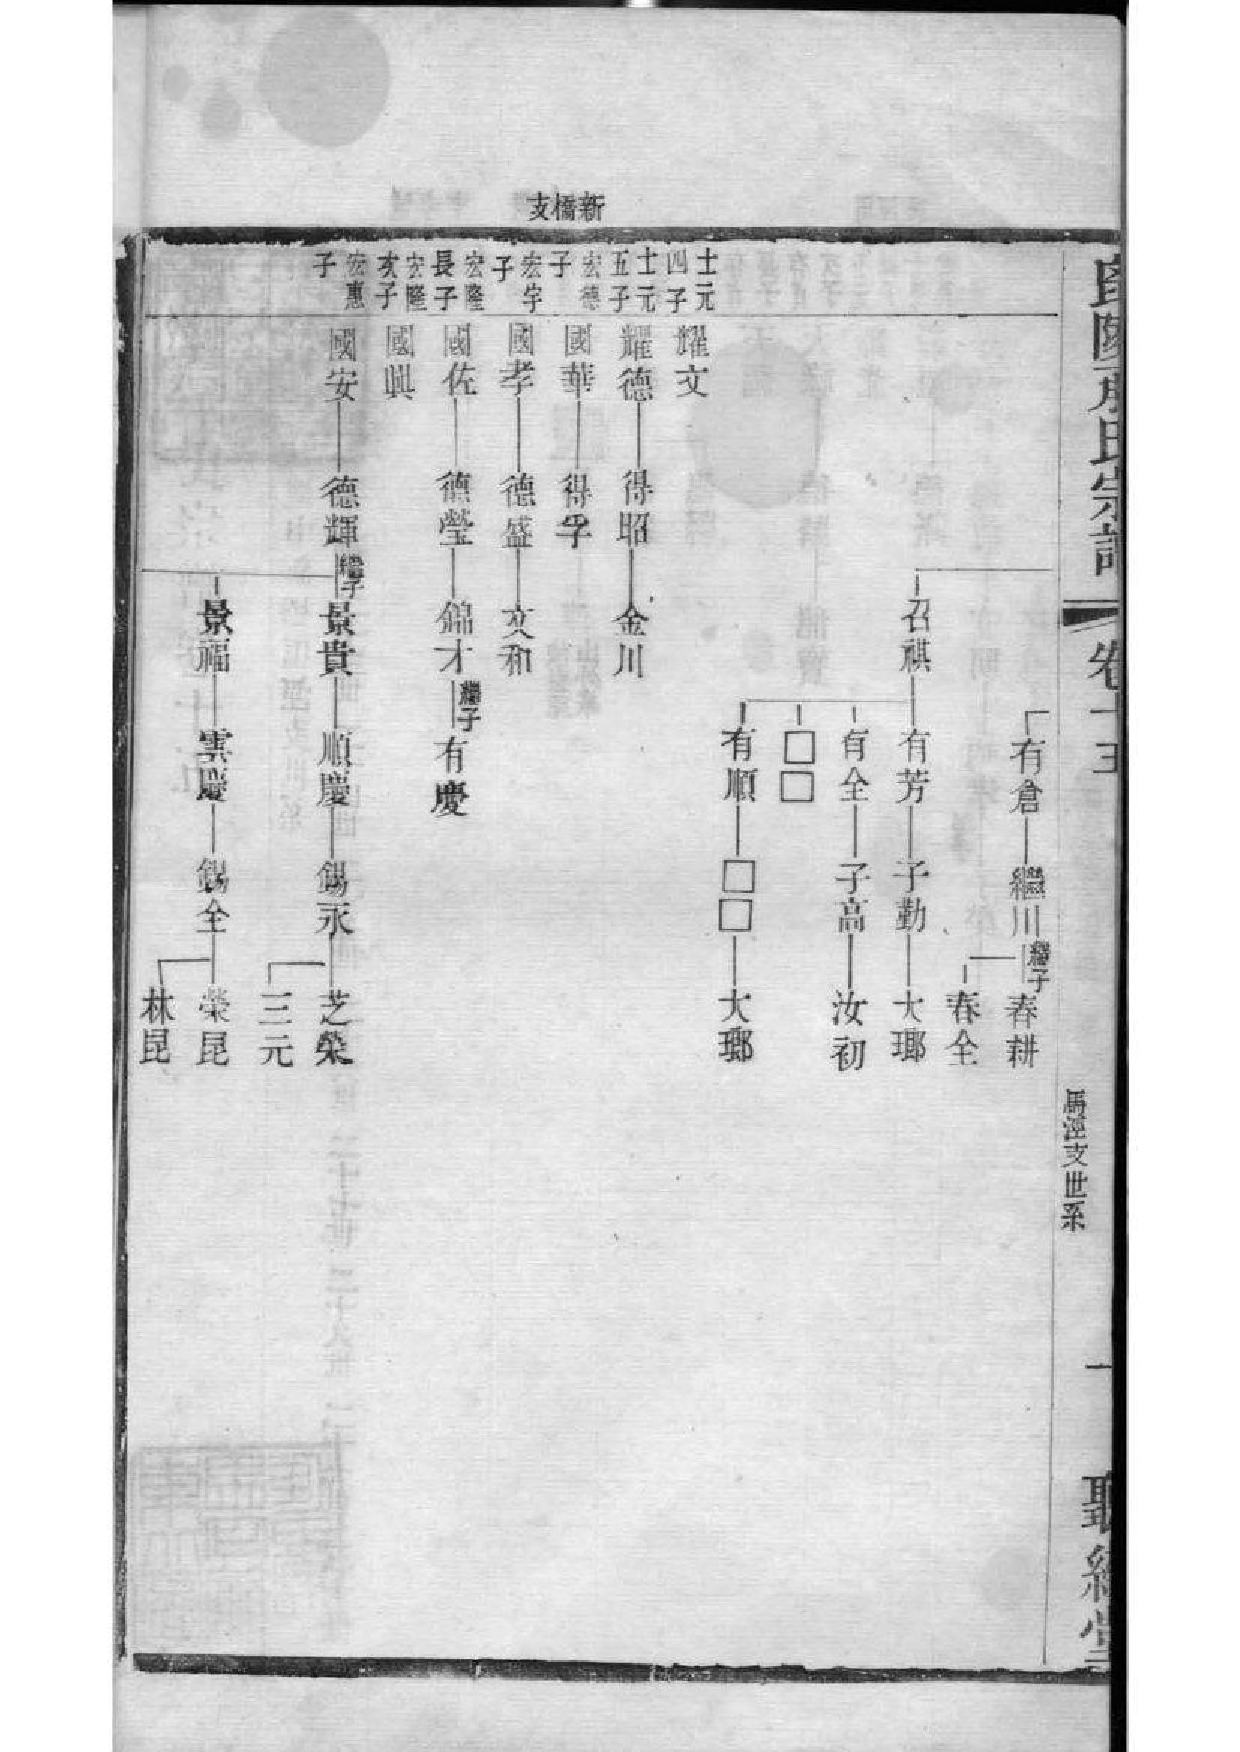 新橋支
氏宗譜
卷十五
馬涇支世系
一
聚經堂
有倉 繼川 繼子 春耕
春全
召祺 有芳 子勤 大瑯
有全 子高 汝初
□□
有順 □□ 大瑯
士元四子 耀文
士元五子 耀德 得昭 金川
宏德子 國華 得孚
宏宇子 國孝 德盛 文和
宏隆長子 國佐 德瑩 錦才 繼子 有慶
宏隆次子 國興
宏惠子 國安 德輝 繼子 景貴 順慶 錫永 芝榮
三元
景福 雲慶 錫全 榮昆
林昆